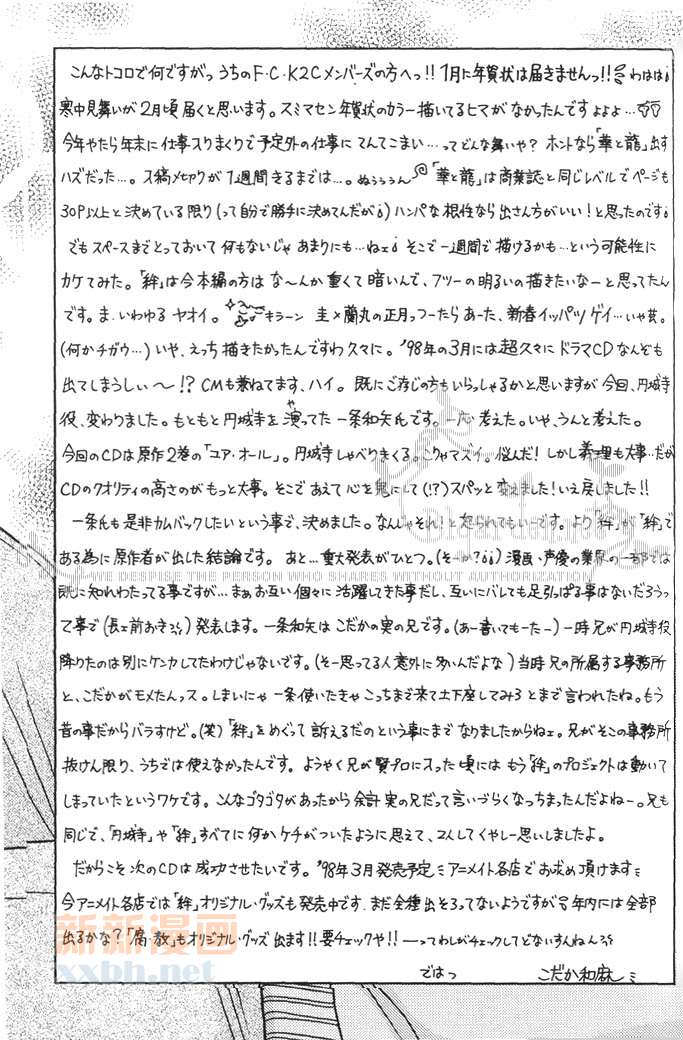 こんなトコロで何ですがっ うちのF・C・K2Cメンバーズの方へっ!! 1月に年賀状は届きませんっ!! わはは
寒中見舞いが2月頃届くと思います。スミマセン年賀状のカラー描いてるヒマがなかったんですよよよ…
今年やたら年末に仕事入りまくりで予定外の仕事にてんてこまい…ってどんな舞いや? ホントなら「華と龍」出す
ハズだった…。入稿〆切りが1週間きるまでは…。ぬぅぅぅん 「華と龍」は商業誌と同じレベルでページも
30P以上と決めている限り(って自分で勝手に決めてんだが)ハンパな根性なら出さん方がいい!と思ったのです
でもスペースまでとっておいて何もないじゃあまりにも…ねェ そこで一週間で描けるかも…という可能性に
カケてみた。「絆」は今本編の方はな〜んか重くて暗いんで、フツーの明るいの描きたいなーと思ってたん
です。ま、いわゆるヤオイ。 キラーン 圭×蘭丸の正月っつーたらあーた、新春イッパツゲイ…いや芸。
(何かチガウ…)いや、えっち描きたかったんですわ久々に。'98年の3月には超久々にドラマCDなんぞも
出てしまうしぃ〜!? CMも兼ねてます、ハイ。既にご存じの方もいらっしゃるかと思いますが今回、円城寺
役、変わりました。もともと円城寺を演ってた一条和矢氏です。一応考えた。いや、うんと考えた。
や
今回のCDは原作2巻の「ユア・オール」。円城寺しゃべりまくる。こりゃマズイ。悩んだ!しかし義理も大事…だが
CDのクオリティの高さのがもっと大事。そこであえて心を鬼にして(!?)スパッと変えました!いえ戻しました!!
一条氏も是非カムバックしたいという事で、決めました。なんじゃそれ!と怒られてもいーです。より「絆」が「絆」で
ある為に原作者が出した結論です。あと…重大発表がひとつ。(そーか?)漫画・声優の業界の一部では
WE DESPISE THE PERSON WHO SHARES WITHOUT AUTHORIZATION
既に知れわたってる事ですが…まぁお互い個々に活躍してきた事だし、互いにバレても足引っぱる事はないだろうっ
て事で(長ェ前おき)発表します。一条和矢はこだかの実の兄です。(あー書いてもーたー)一時兄が円城寺役
降りたのは別にケンカしてたわけじゃないです。(そー思ってる人意外に多いんだよな)当時兄の所属する事務所
と、こだかがモメたんっス。しまいにゃ一条使いたきゃこっちまで来て土下座してみろとまで言われたね。もう
昔の事だからバラすけど。(笑)「絆」をめぐって訴えるだのという事にまでなりましたからねェ。兄がそこの事務所
抜けん限り、うちでは使えなかったんです。ようやく兄が賢プロに入った頃にはもう「絆」のプロジェクトは動いて
しまっていたというワケです。こんなゴタゴタがあったから余計実の兄だって言いづらくなっちまったんだよねー。兄も
同じで、「円城寺」や「絆」すべてに何かケチがついたように思えて、2人してくやしー思いしましたよ。
だからこそ次のCDは成功させたいです。'98年3月発売予定 アニメイト各店でお求め頂けます
今アニメイト各店では「絆」オリジナル・グッズも発売中です。まだ全種出そろってないようですが 年内には全部
出るかな?「腐・教」もオリジナル・グッズ出ます!!要チェックや!! ーってわしがチェックしてどないすんねん
新新漫画
xxbh.net
ではっ こだか和麻